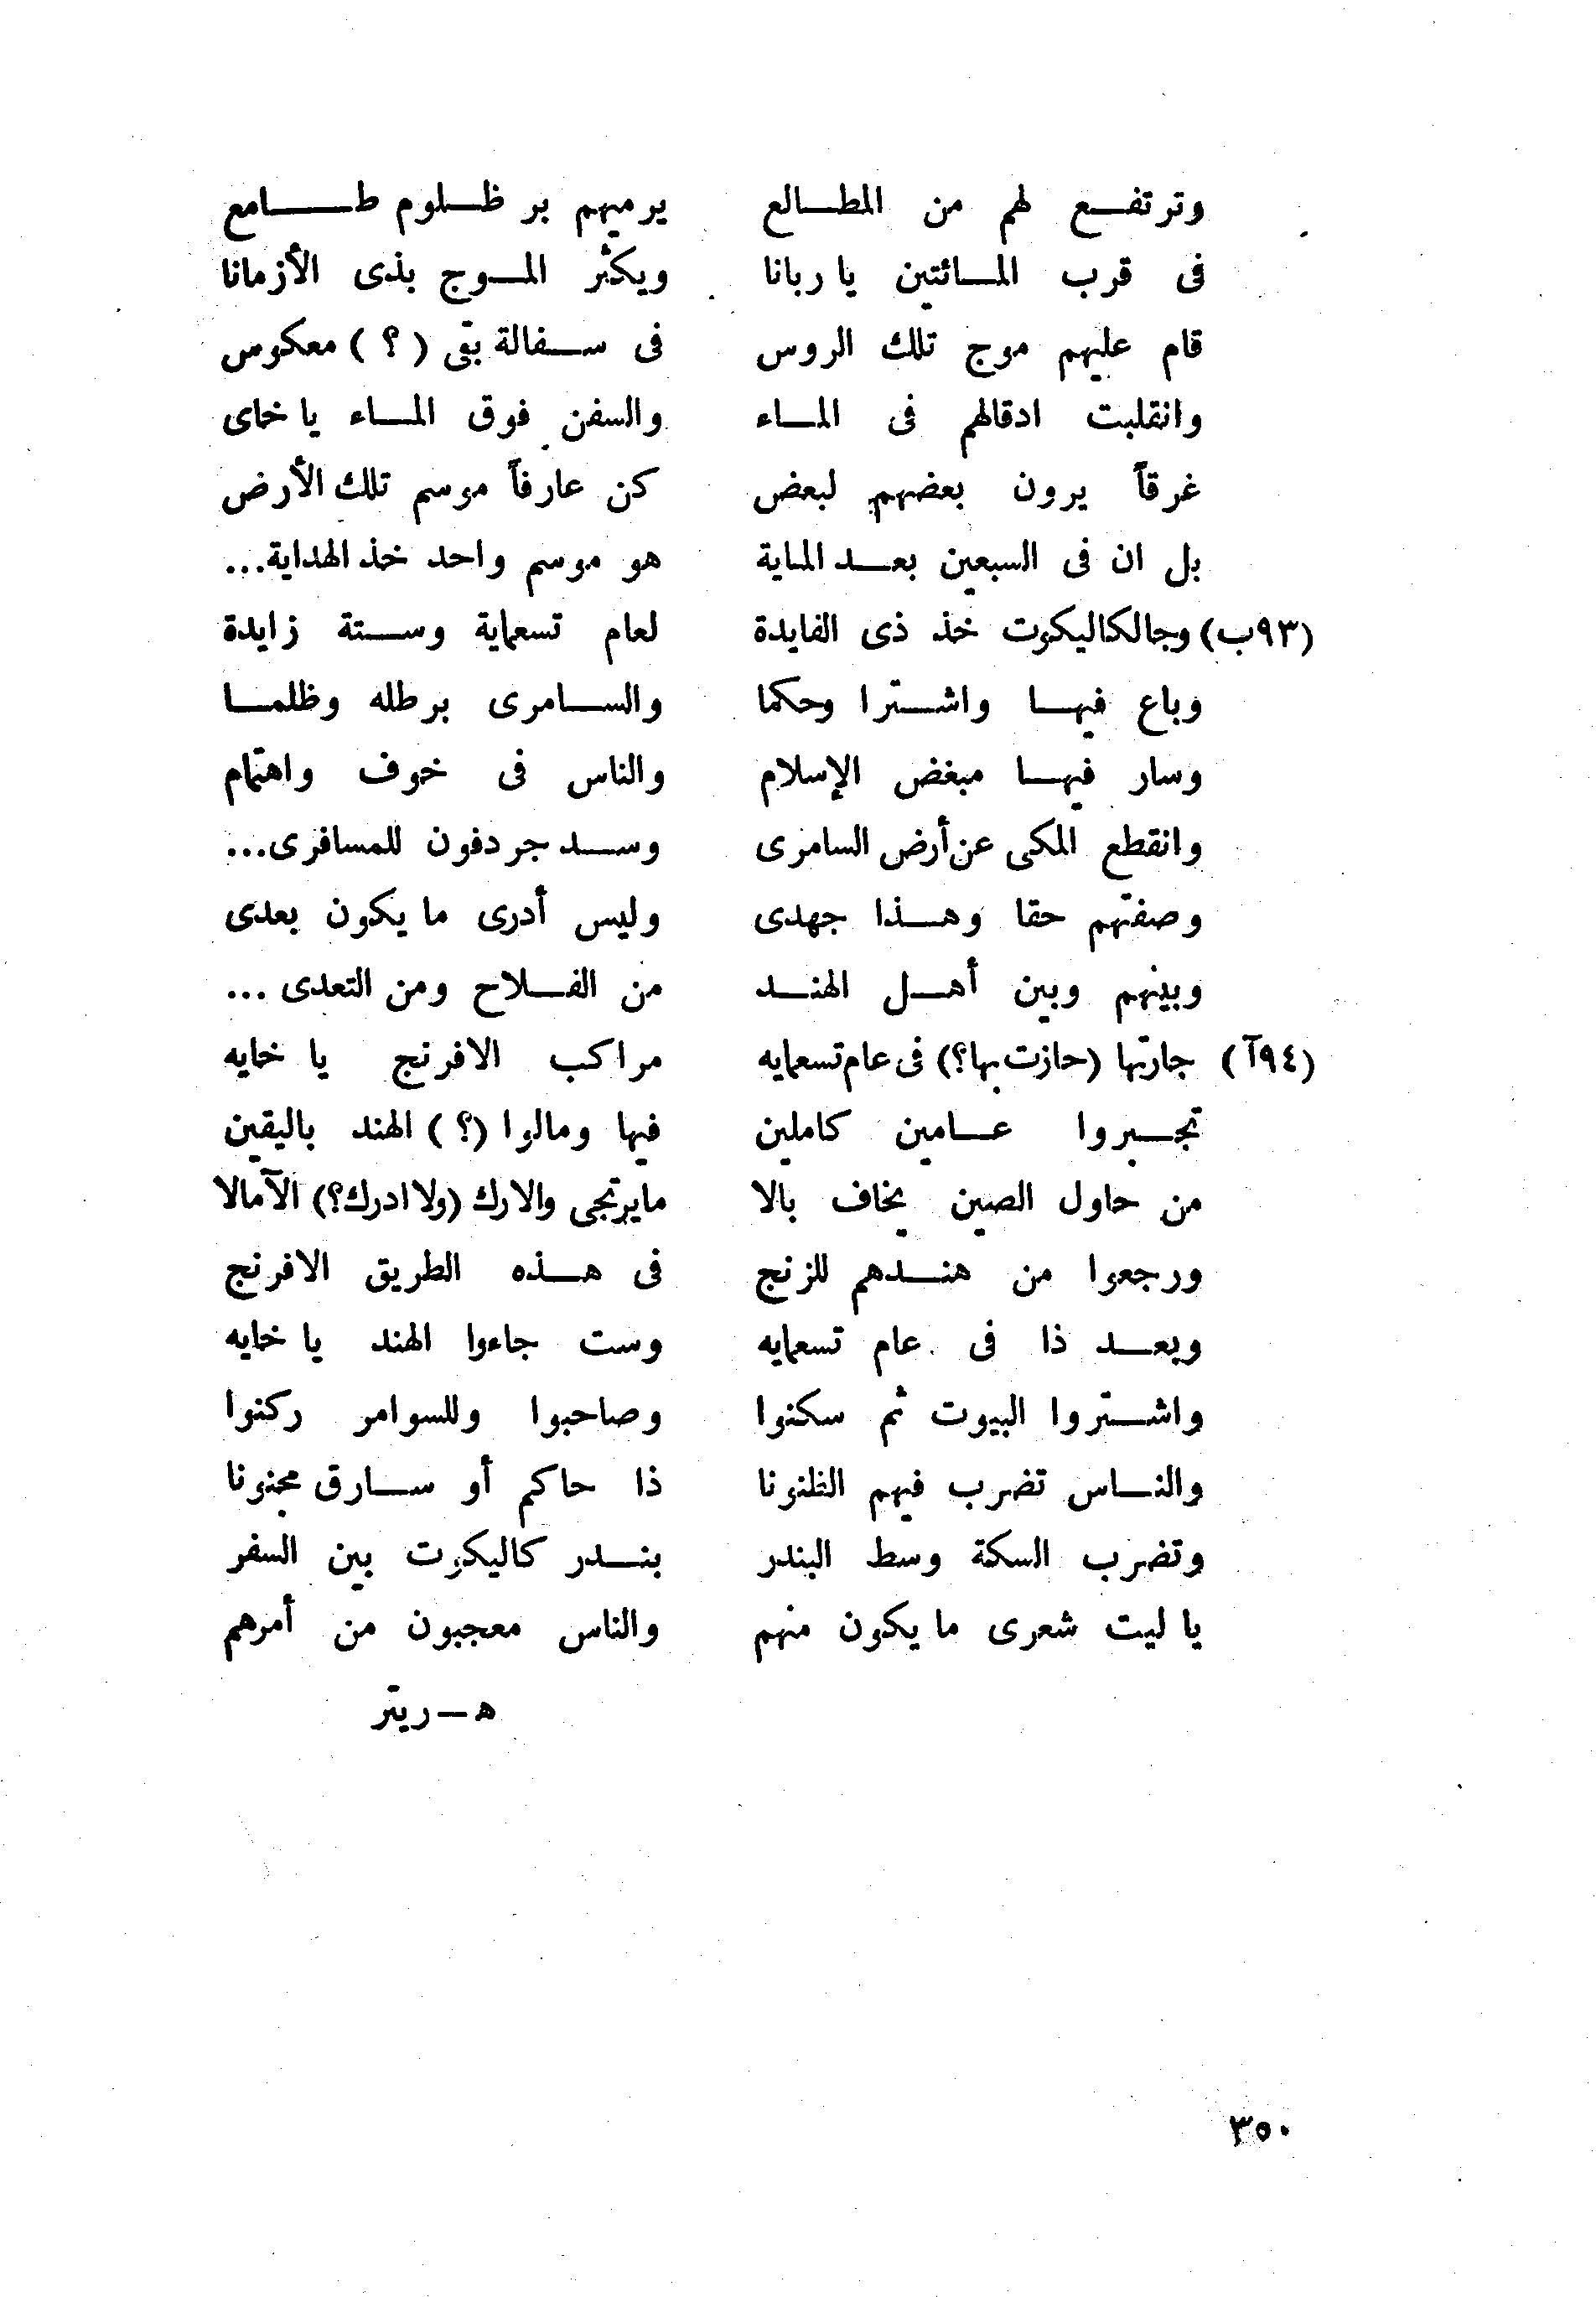 وترتفع لهم من المطالع يرميهم بر ظلوم طامع
فى قرب المائتين يا ربانا ويكثر الموج بذى الأزمانا
قام عليهم موج تلك الروس فى سفالة بقى (؟) معكوس
وانقلبت ادقالهم فى الماء والسفن فوق الماء يا خاى
غرقاً يرون بعضهم لبعض كن عارفاً موسم تلك الأرض
بل ان فى السبعين بعد الماية هو موسم واحد خذ الهداية...
(٩٣ب) وجا لكاليكوت خذ ذى الفايدة لعام تسعماية وستة زايدة
وباع فيها واشترا وحكما والسامرى برطله وظلما
وسار فيها مبغض الإسلام والناس فى خوف واهتمام
وانقطع المكى عن أرض السامرى وسد جردفون للمسافرى...
وصفتهم حقا وهذا جهدى وليس أدرى ما يكون بعدى
وبينهم وبين أهل الهند من الفلاح ومن التعدى ...
(٩٤آ) جارتها (حازت بها؟) فى عام تسعمايه مراكب الافرنج يا خايه
تجبروا عامين كاملين فيها ومالوا (؟) الهند باليقين
من حاول الصين يخاف بالا ما يرتجى والارك (ولا ادرك؟) الآمالا
ورجعوا من هندهم للزنج فى هذه الطريق الافرنج
وبعد ذا فى عام تسعمايه وست جاءوا الهند يا خايه
واشتروا البيوت ثم سكنوا وصاحبوا وللسوامر ركنوا
والناس تضرب فيهم الظنونا ذا حاكم أو سارق مجنونا
وتضرب السكة وسط البندر بندر كاليكوت بين السفر
يا ليت شعرى ما يكون منهم والناس معجبون من أمرهم
ه – ريتر
٣٥٠